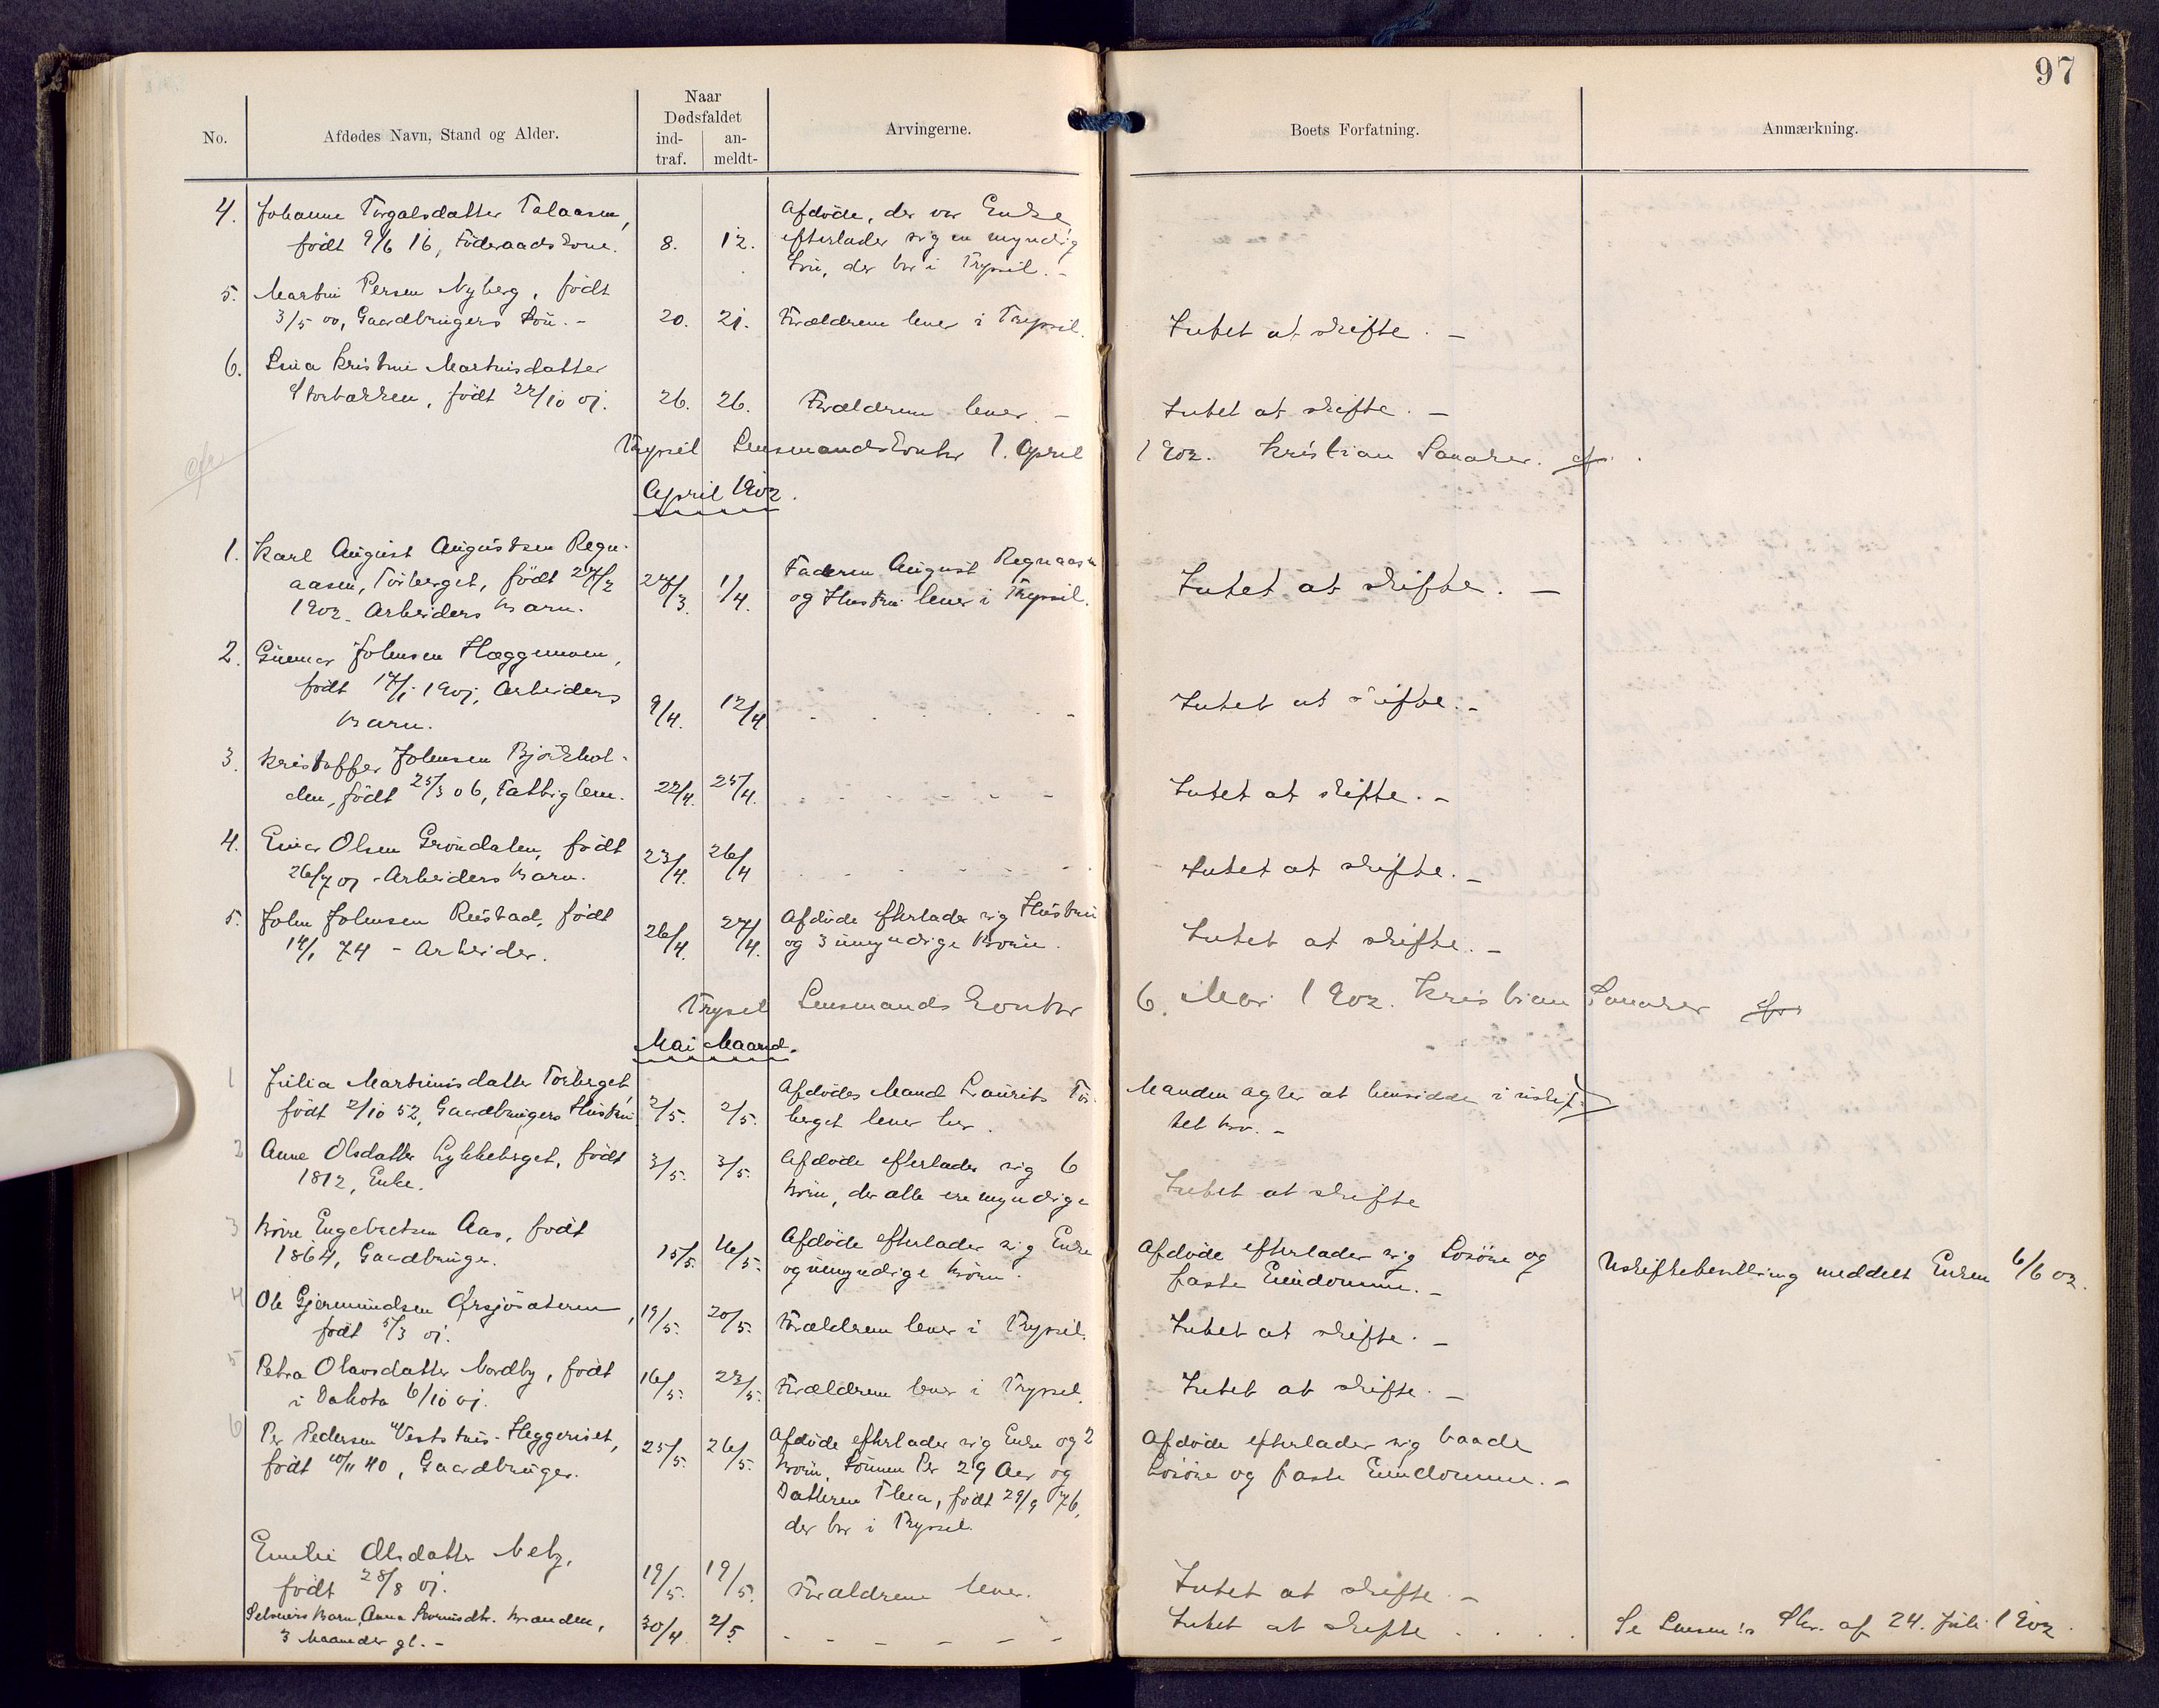 97
No.
Afdødes Navn, Stand og Alder.
Naar Dødsfaldet
ind-traf.
an-meldt-
Arvingerne.
Boets Forfatning.
Anmærkning.
4. Johanne Torgalsdatter Talaasen,
født 9/6 16, Föderaadskone. 8. 12.
Afdöde, der var Enke
efterlader sig en myndig
Sön, der bor i Trysil. -
5. Martin Persen Nyberg, født
3/5 00, Gaardbrugers Sön. - 20. 21. Forældrene lever i Trysil. Intet at skifte. -
6. Lina Kristine Martinsdatter
Storbakken, født 22/10 01. 26. 26. Forældrene lever. - Intet at skifte. -
Trysil Lensmandskontor 1. April 1902. Kristian Sanaker. cfr.
cfr
April 1902.
1. Karl August Augustsen Regn-
aasen, Törberget, födt 27/2
1902. Arbeiders Barn. 27/3. 1/4.
Faderen August Regnaasen
og Hustru lever i Trysil.
Intet at skifte. -
2. Gunnar Johnsen Hæggemoen,
født 17/1 1901, Arbeiders
Barn. 9/4. 12/4 - - - Intet at skifte. -
3. Kristoffer Johnsen Björkhol-
den, født 25/3 06, Fattiglem. 22/4. 25/4. - - - Intet at skifte. -
4. Einar Olsen Gröndalen, født
26/7 01 - Arbeiders Barn. 23/4. 26/4 - - - Intet at skifte. -
5. John Johnsen Rustad, födt
14/1 74 - Arbeider. 26/4. 27/4.
Afdöde efterlader sig Hustru
og 3 umyndige Börn.
Intet at skifte. -
Trysil Lensmandskontor 6. Mai 1902. Kristian Sanaker cfr.
Mai Maaned.
1 Julia Martinusdatter Törberget,
født 2/10 52, Gaardbrugers Hustru 2/5. 2/5.
Afdödes Mand Laurits Tör-
berget lever her.
Manden agter at hensidde i uskif-
tet bo. -
2 Anne Olsdatter Lykkeberget, födt
1812, Enke. 3/5. 3/5.
Afdöde efterlader sig 6
Börn, der alle ere myndige
Intet at skifte
3 Börre Engebretsen Aas, födt
1864, Gaardbruger. 15/5. 16/5.
Afdöde efterlader sig Enke
og umyndige Börn.
Afdöde efterlader sig Lösöre og
faste Eiendomme. -
Uskiftebevilling meddelt Enken 6/6 02.
4 Ole Gjermundsen Ørsjösæteren,
födt 5/3 01. 19/5. 20/5. Forældrene lever i Trysil. Intet at skifte. -
5 Petra Olavsdatter Nordby, födt
i Dakota 6/10 01. 16/5. 23/5. Forældrene lever i Trysil. Intet at skifte. -
6 Per Pedersen Heggeriset,
födt 10/11 40, Gaardbruger. 25/5. 26/5.
Afdöde efterlader sig Enke og 2
Börn, Sönnen Per 29 Aar og
Datteren Thea, födt 29/9 76,
der bor i Trysil.
Afdöde efterlader sig baade
Lösöre og faste Eiendomme. -
Emilie Olsdatter
födt 28/8 01. 19/5. 19/5. Forældrene lever. Intet at skifte. -
Barn, Anna 
3 Maaneder gl. - 30/4 2/5. - - - Intet at skifte . . . .
Se Lensm:s Skr. af 24. Juli 1902.